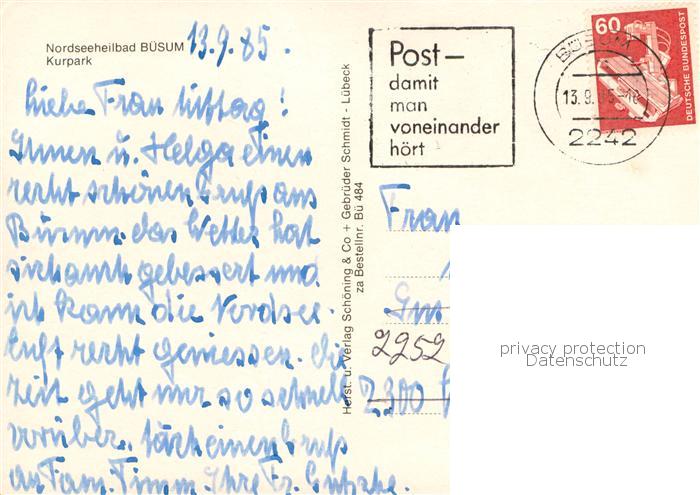 Nordseeheilbad BÜSUM
Kurpark
13.9.85.
Liebe Frau
Ihnen u. Helga einen
recht schönen Gruß aus
Büsum das Wetter hat
sich auch gebessert und
ich kann die Nordsee-
luft recht geniessen. die
Zeit geht nur so schnell
vorüber. einen Gruß
an Fam. Timm. Ihre Fr.
Horst. u. Verlag Schöning & Co + Gebrüder Schmidt · Lübeck
za Bestellnr. Bü 484
Post–
damit
man
voneinander
hört
BÜSUM
13.9.85-18
2242
60
DEUTSCHE BUNDESPOST
Frau
2252
2300
privacy protection
Datenschutz